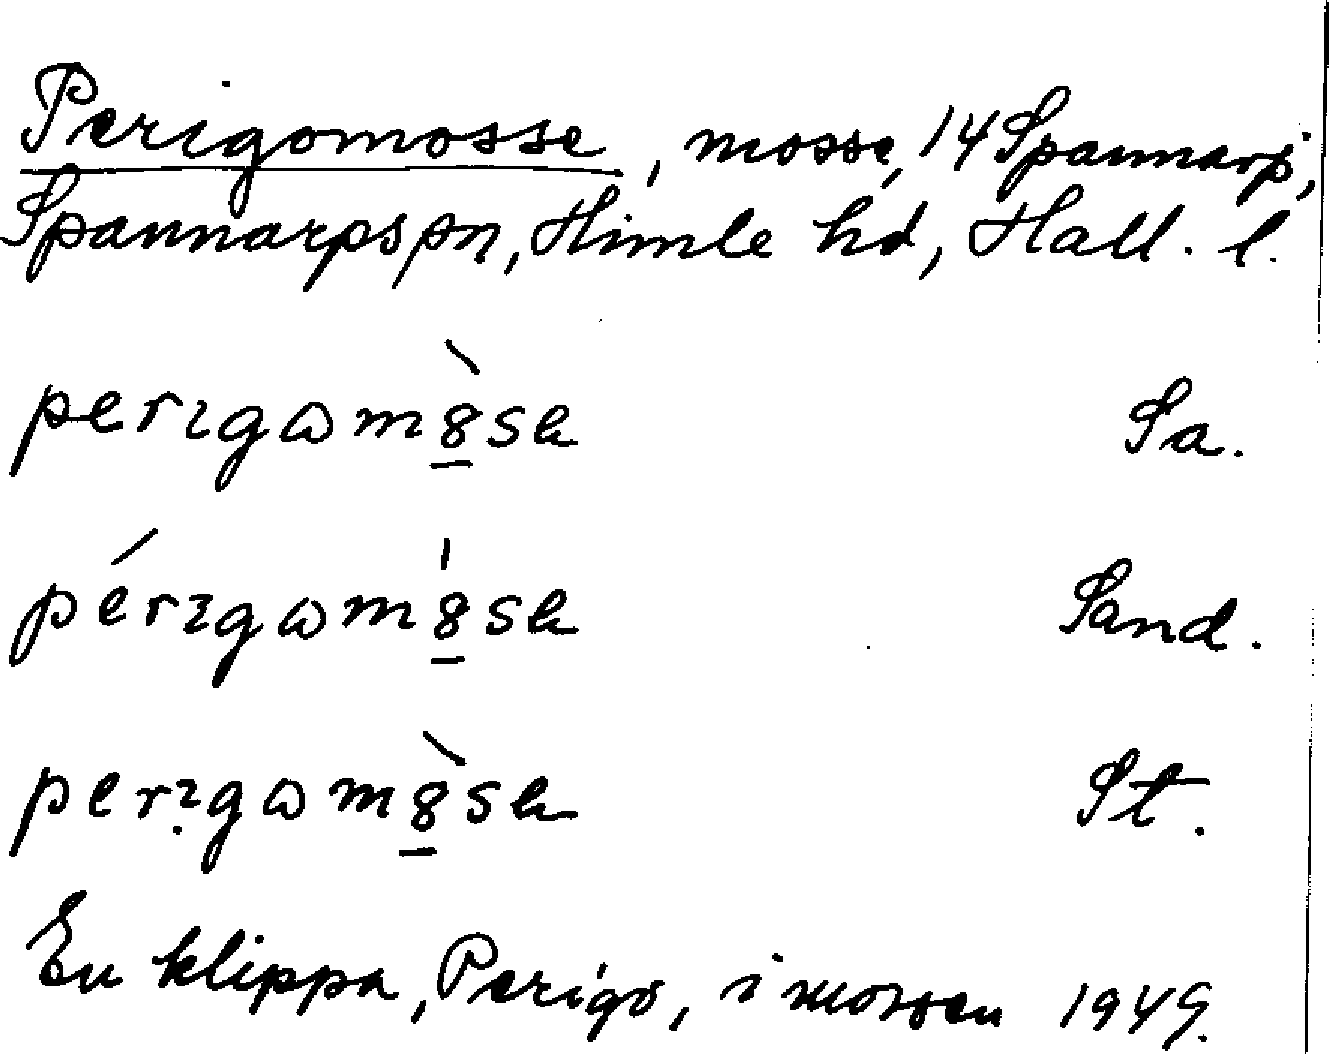 Perigomosse, mosse, 14 Spannarp,
Spannarps sn, Himle hd, Hall. l.
perıgɷm8̀se Sa.
pérıgɷm8́se Sand.
perıgɷm8̀se St.
En klippa, Perigö, i mossen 1949.